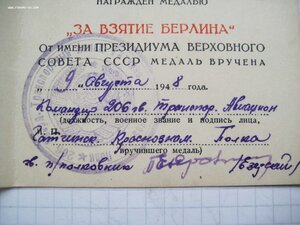 НАГРАЖДЕН МЕДАЛЬЮ
„ЗА ВЗЯТИЕ БЕРЛИНА"
ОТ ИМЕНИ ПРЕЗИДИУМА ВЕРХОВНОГО
СОВЕТА СССР МЕДАЛЬ ВРУЧЕНА
„9" августа 1948 года.
Командир 206 гв. транспор. Авиацион
(должность, военное звание и подпись лица,
Гатчинск. Краснознам. Полка
вручившего медаль)
гв. п/полковник